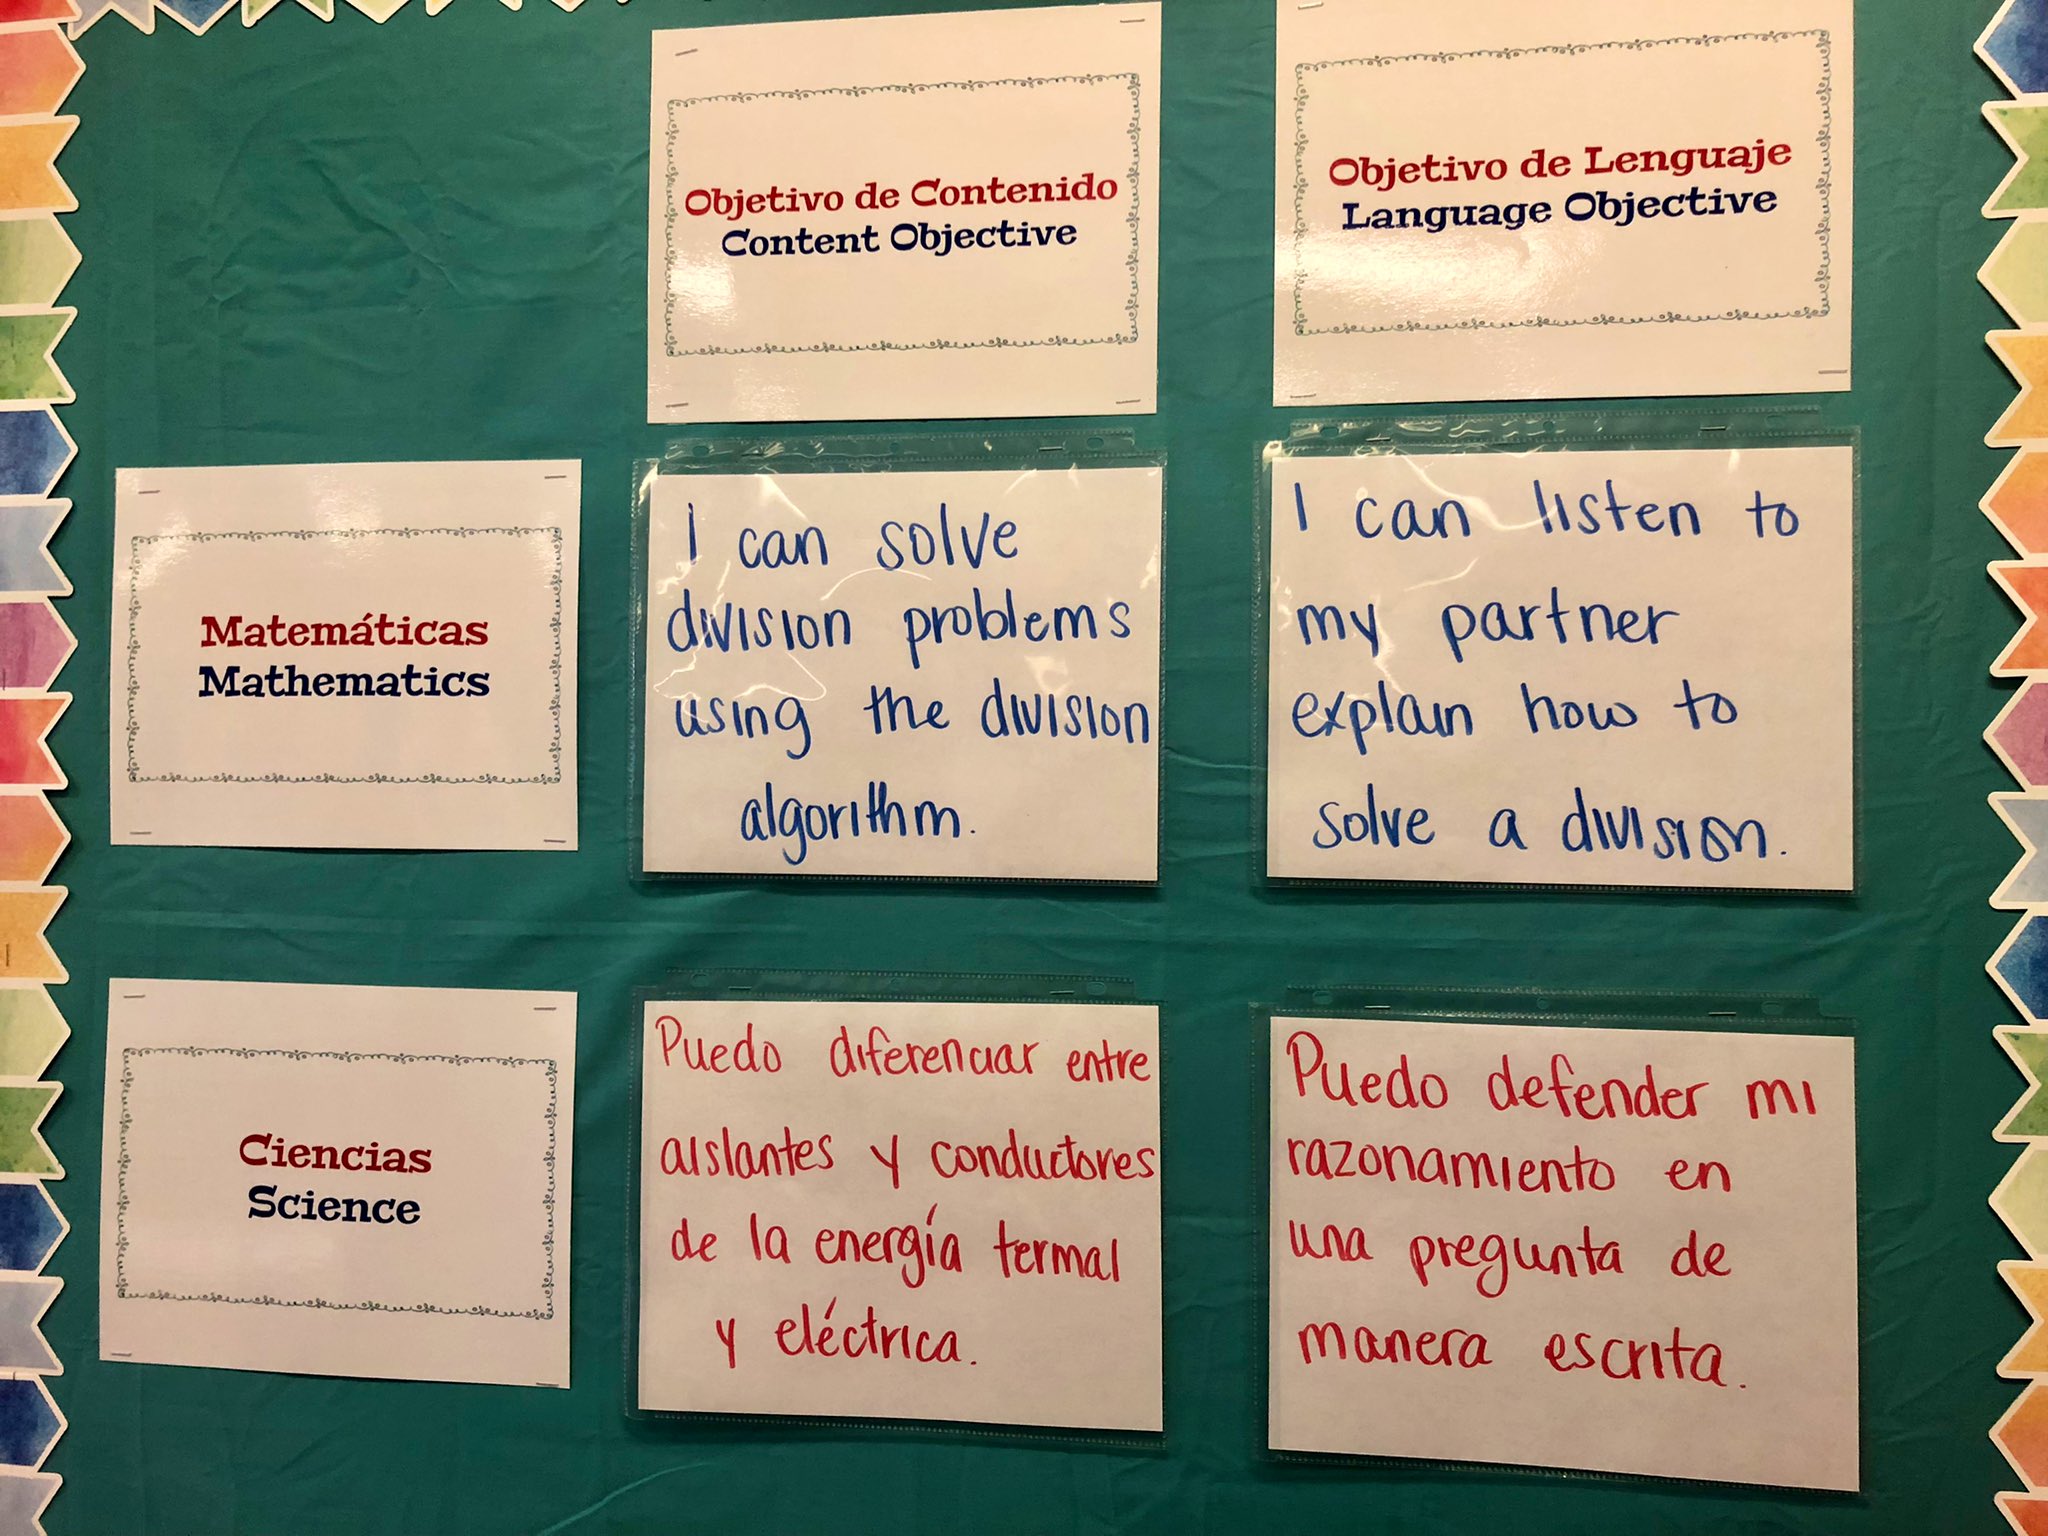 Objetivo de Contenido
Content Objective
Objetivo de Lenguaje
Language Objective
Matemáticas
Mathematics
I can solve
division problems
using the division
algorithm.
I can listen to
my partner
explain how to
solve a division.
Ciencias
Science
Puedo diferenciar entre
aislantes y conductores
de la energía termal
y eléctrica.
Puedo defender mi
razonamiento en
una pregunta de
manera escrita.